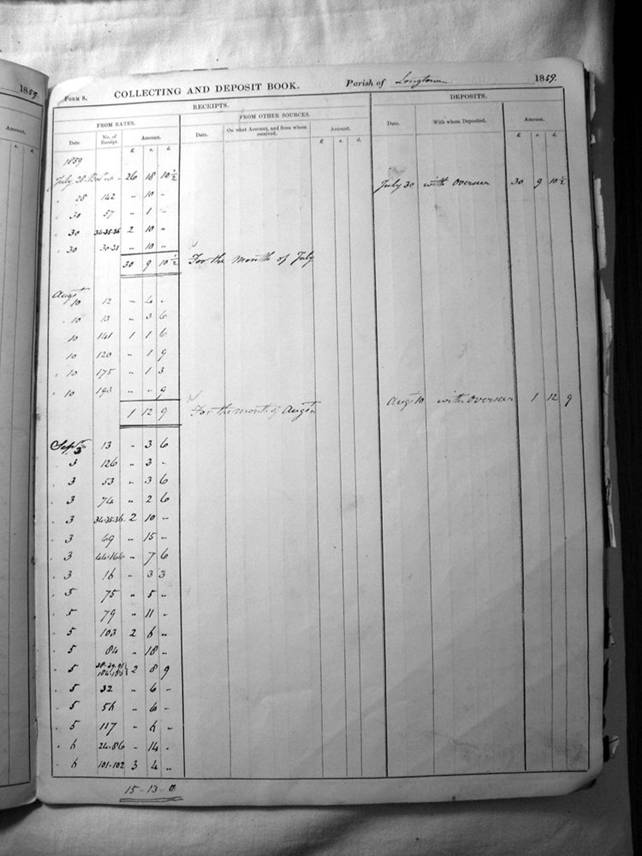 1859
Amount.
s. d.
FORM 8. COLLECTING AND DEPOSIT BOOK. Parish of Longtown 1859.
RECEIPTS. DEPOSITS.
FROM RATES. FROM OTHER SOURCES.
Date No. of Receipt. Amount. Date. On what Account, and from whom received. Amount. Date. With whom Deposited. Amount.
£ s. d. £ s. d. £ s. d.
1859
July 28 26 18 10½ July 30 with Overseer 30 9 10½
" 28 142 - 10 -
" 30 57 - 1 -
" 30 34-35-36 2 10 -
" 30 30-31 - 10 -
30 9 10½ For the month of July
Augst
10 12 - 4 -
" 10 13 - 3 6
10 141 1 1 6
" 10 120 - 1 9
" 10 175 - 1 3
" 10 193 - - 9
1 12 9 For the month of Augst Augt 10 with Overseer 1 12 9
Septr
3 13 - 3 6
" 3 126 - 3 -
" 3 53 - 3 6
" 3 74 - 2 6
" 3 34-35-36 2 10 -
" 3 69 - 15 -
" 3 44-166 - 7 6
" 3 16 - 3 3
" 5 75 - 5 -
" 5 79 - 11 -
" 5 103 2 -
" 5 84 - 18 -
" 5 2 8 9
" 5 32 - 6 -
" 5 - 6 -
" 5 117 -
" 24-86 - 14 -
" 101-102 3 4 -
15-13-0